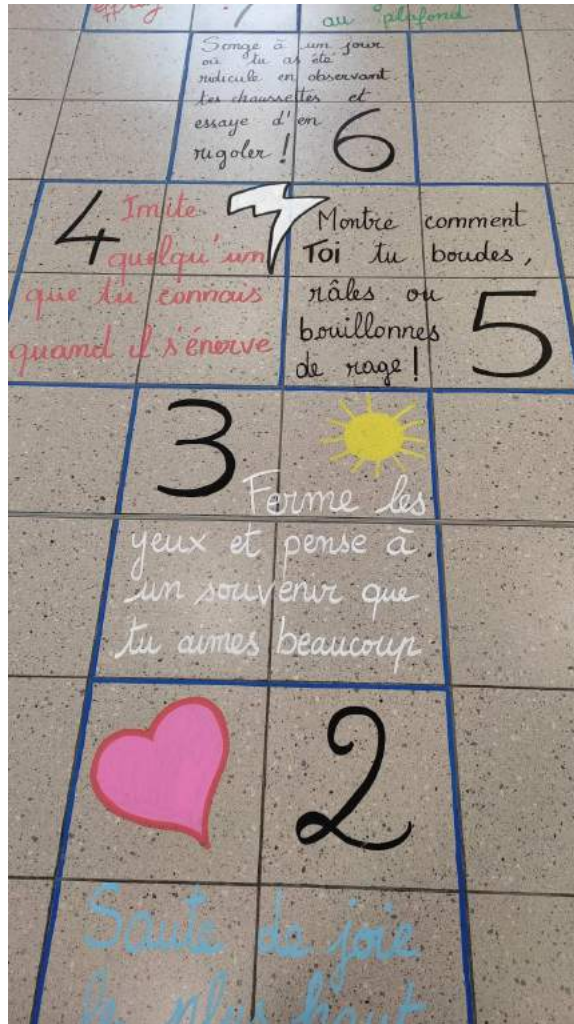 au plafond
Songe à un jour
où tu as été
ridicule en observant
tes chaussettes et
essaye d'en
rigoler !
6
4
Imite
quelqu'un
que tu connais
quand il s'énerve
Montre comment
Toi tu boudes,
râles ou
bouillonnes
de rage !
5
3
Ferme les
yeux et pense à
un souvenir que
tu aimes beaucoup
2
Saute de joie
le plus haut